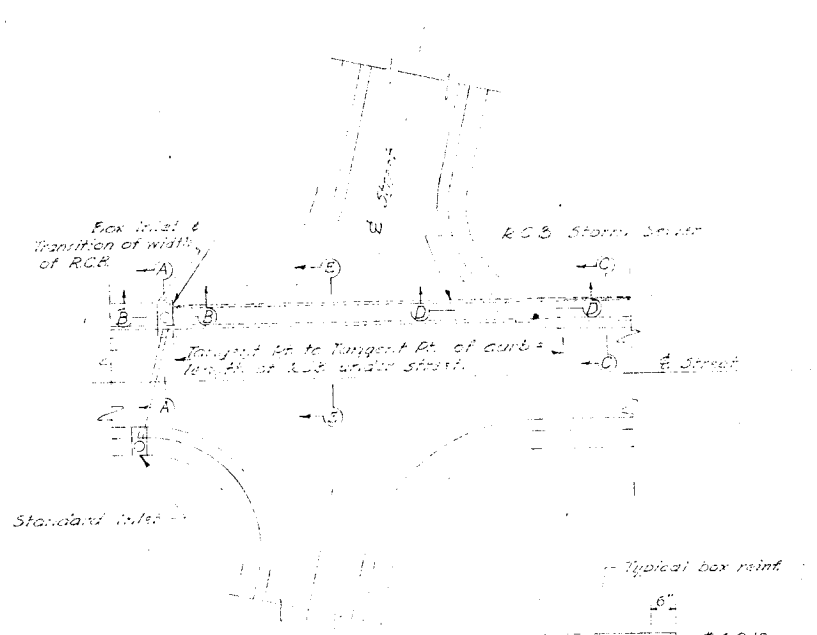 ℄ Street
Box Inlet &
Transition of width
of R.C.B.
R.C.B Storm Sewer
A
E
C
B
B
D
D
Tangent Pt. to Tangent Pt. of curb =
length of R.C.B. under street.
C
℄ Street
A
Standard Inlet
Typical box reinf.
6"